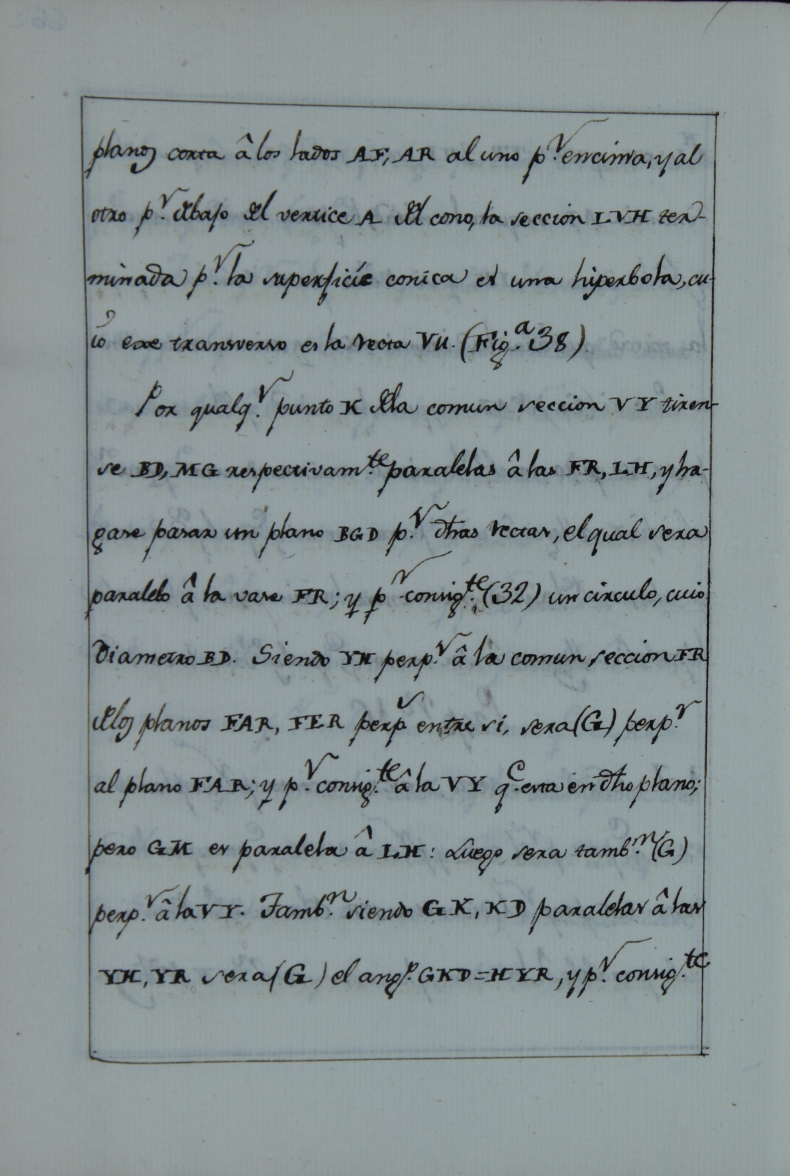 planos corta â los lados AF, AR al uno p.r encima, y al
otro p.r debajo del vertice A del cono, la sección LVH ter-
minada p.r la superficie conica es una hiperbola, cu-
io exe transverso es la recta VU. (Fig.a 38)
Por qualq.r punto K de la comun seccion VY tiren-
se BD, MG respectivam.te paralelas â las FR, LH, y ha-
gase pasar un plano BGD p.r dhas rectas, el qual sera
paralelo â la vase FR; y p.r consig.te (32) un circulo, cuio
Diametro BD. Siendo YH perp.r â la comun seccion FR
de los planos FAR, FER perp.s entre si, sera (G) perp.r
al plano FAR; y p.r consig.te â la VY q.e esta en dho plano;
pero GM es paralela â LH: Luego sera tamb.n (G)
perp.r â la VY. Tamb.n siendo GK, KD paralelas â las
YH, YR sera (G) el ang.o GKD=HYR, y p.r consig.te